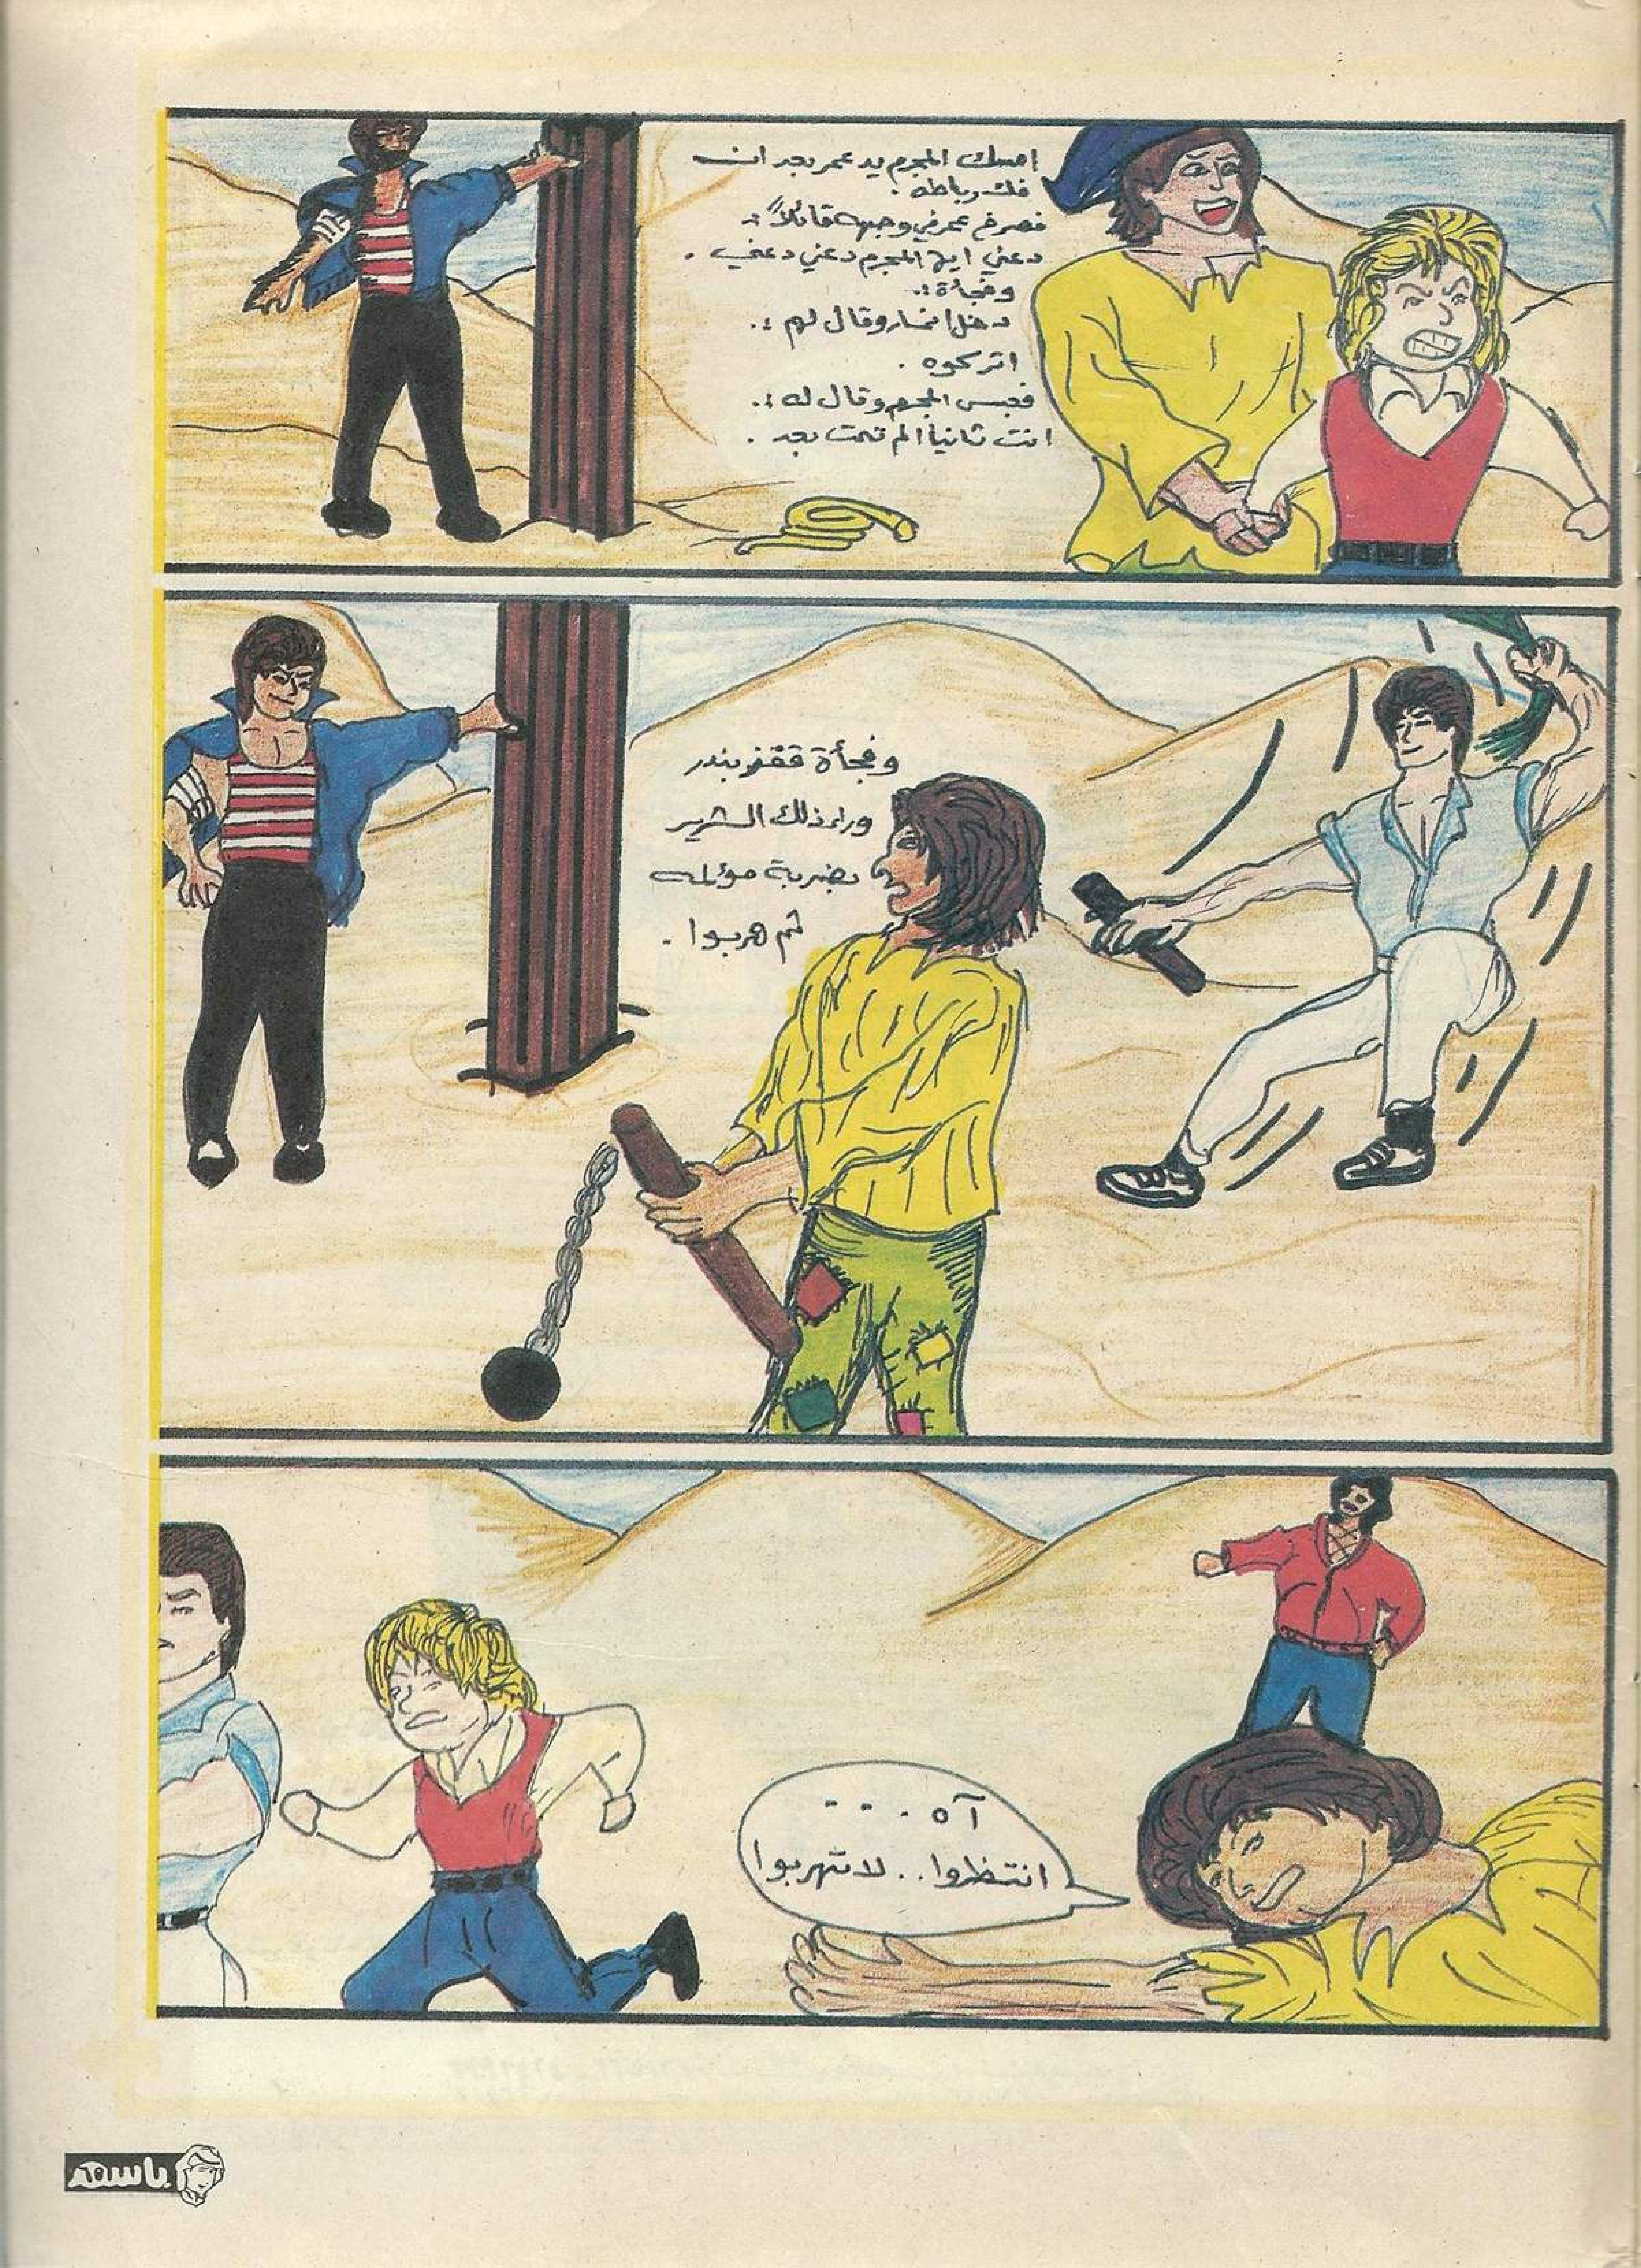 امسك المجرم يد عمر بعد ان
فك رباطه .
فصرخ عمر في وجهه قائلاً :
دعني ايها المجرم دعني دعني .
وفجأة :.
دخل انمار وقال لهم :.
اتركوه .
فعبس المجرم وقال له :.
انت ثانياً الم تمت بعد .
وفجأة قفز بندر
وراء ذلك الشرير
بضربة مؤلمه
ثم هربوا .
آه . . . .
انتظروا . . لا تهربوا
باسم